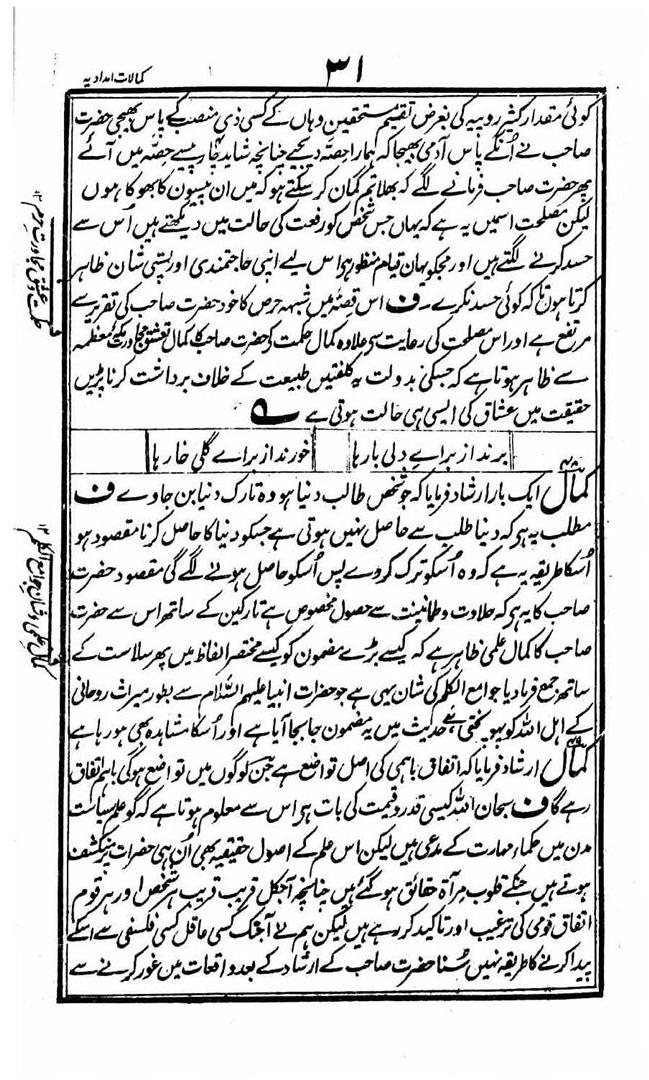 ۳۱
کمالات امدادیہ
کوئی مقدار کثیر روپیہ کی بغرض تقسیم مستحقین وہاں کے کسی ذی منصب کے پاس بھیجی حضرت
صاحب نے اُنکے پاس آدمی بھیجا کہ ہمارا حصہ دیجیے چنانچہ شاید چار پیسے حصہ میں آئے
پھر حضرت صاحب فرمانے لگے کہ بھلا تم گمان کر سکتے ہو کہ میں ان پیسوں کا بھوکا ہوں
لیکن مصلحت اسمیں یہ ہے کہ یہاں جس شخص کو رفعت کی حالت میں دیکھتے ہیں اُس سے
حسد کرنے لگتے ہیں اور مجکو یہاں قیام منظور ہی اس لیے اپنی حاجتمندی اور پستی شان ظاہر
کرتا ہوں تاکہ کوئی حسد نکرے۔ ف اس قصہ میں شبہہ حرص کا خود حضرت صاحب کی تقریر سے
مرتفع ہے اور اس مصلحت کی رعایت سی علاوہ کمال حکمت کی حضرت صاحب کا کمال تعشق مجاورت مکہ معظمہ
سے ظاہر ہوتا ہے کہ جسکی بدولت یہ کلفتیں طبیعت کے خلاف برداشت کرنا پڑیں
حقیقت میں عشاق کی ایسی ہی حالت ہوتی ہے
برند از براے دلی بارہا خورند از براے گلی خارہا
کمال ایک بار ارشاد فرمایا کہ جو شخص طالب دنیا ہو وہ تارک دنیا بن جاوے ف
مطلب یہ ہی کہ دنیا طلب سے حاصل نہیں ہوتی ہے جسکو دنیا کا حاصل کرنا مقصود ہو
اُسکا طریقہ یہ ہے کہ وہ اُسکو ترک کر دے پس اُسکو حاصل ہونے لگے گی مقصود حضرت
صاحب کا یہ ہی کہ حلاوت و طمانینت سے حصول مخصوص ہے تارکین کے ساتھ اس سے حضرت
صاحب کا کمال علمی ظاہر ہے کہ کیسے بڑے مضمون کو کیسے مختصر الفاظ میں پھر سلاست کے
ساتھ جمع فرما دیا جوامع الکلم کی شان یہی ہے جو حضرات انبیا علیہم السلام سے بطور میراث روحانی
کے اہل اللہ کو پہونچتی ہے حدیث میں یہ مضمون جابجا آیا ہے اور اُسکا مشاہدہ بھی ہو رہا ہے
کمال ارشاد فرمایا کہ اتفاق باہمی کی اصل تواضع ہے جن لوگوں میں تواضع ہو گی باہم اتفاق
رہے گا ف سبحان اللہ کیسی قدر و قیمت کی بات ہی اس سے معلوم ہوتا ہے کہ گو علم سیاست
مدن میں حکماء مہارت کے مدعی ہیں لیکن اس علم کے اصول حقیقیہ بھی اُن ہی حضرات پر منکشف
ہوتے ہیں جنکے قلوب مرآۃ حقائق ہو گئے ہیں چنانچہ آجکل قریب قریب ہر شخص اور ہر قوم
اتفاق قومی کی ترغیب اور تاکید کر رہے ہیں لیکن ہم نے آجتک کسی عاقل کسی فلسفی سے اسکے
پیدا کرنے کا طریقہ نہیں سُنا حضرت صاحب کے ارشاد کے بعد واقعات میں غور کرنے سے
حکمت و عشق مجاورت حرم ۱۲
کمال علمی و شان جوامع الکلم ۱۲